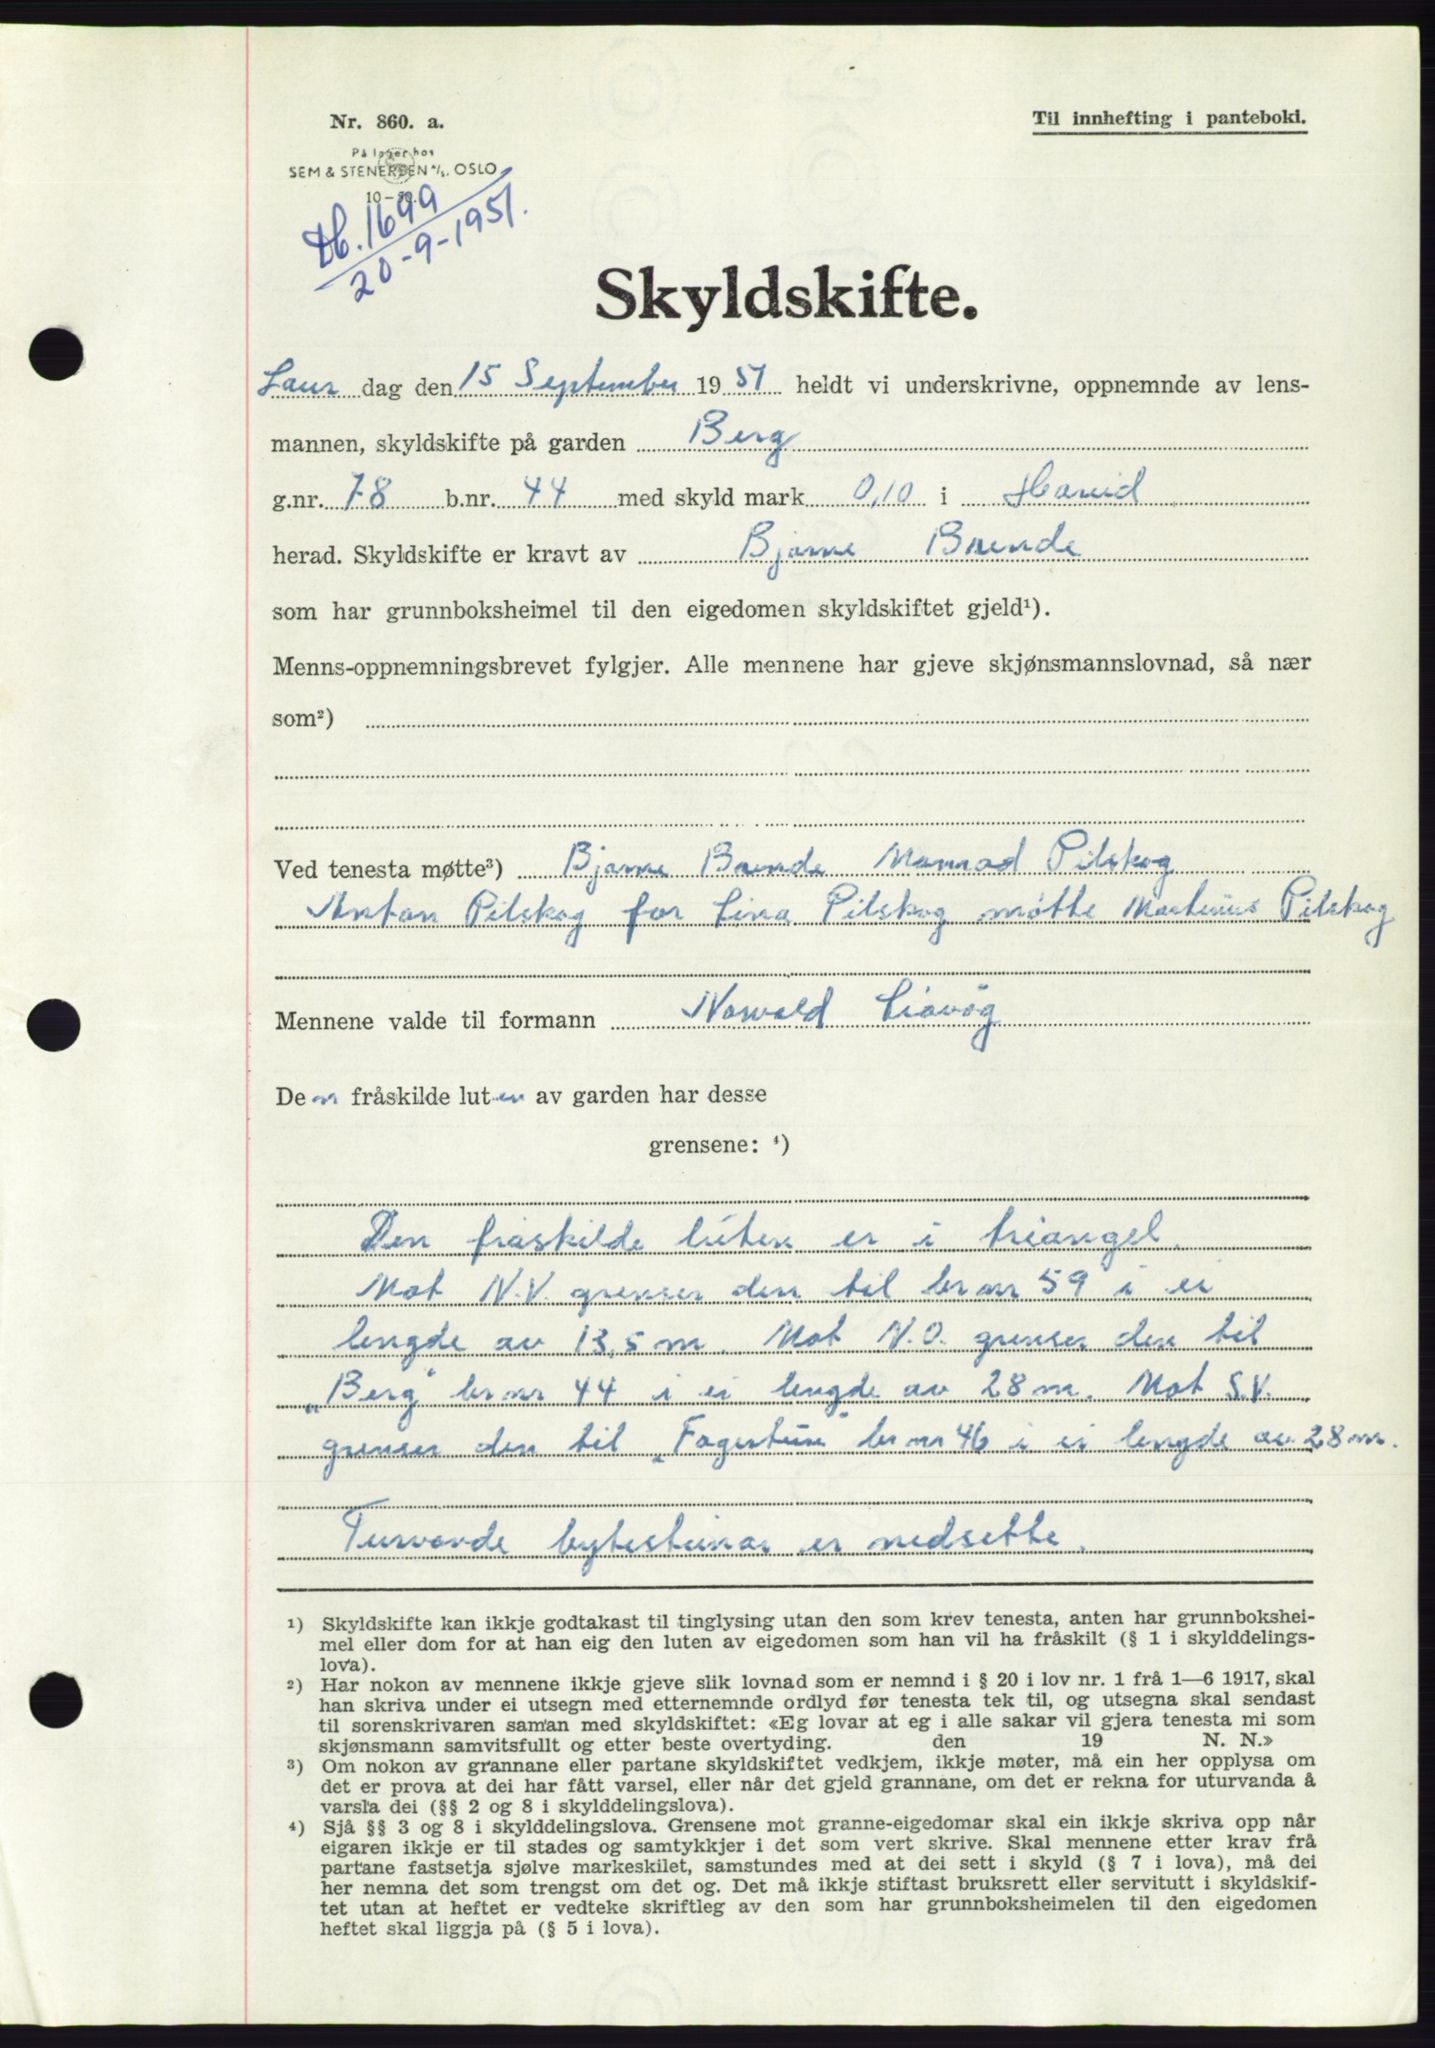 Nr. 860. a.
Til innhefting i panteboki.
På lager hos
SEM & STENERSEN A/S, OSLO
10–50.
Db. 1699
20-9-1951.
Skyldskifte.
Laur dag den 15 September 1951 heldt vi underskrivne, oppnemnde av lens-
mannen, skyldskifte på garden Berg
g.nr. 78 b.nr. 44 med skyld mark 0,10 i Hareid
herad. Skyldskifte er kravt av Bjarne Brende
som har grunnboksheimel til den eigedomen skyldskiftet gjeld¹).
Menns-oppnemningsbrevet fylgjer. Alle mennene har gjeve skjønsmannslovnad, så nær
som²)
Ved tenesta møtte³) Bjarne Brende Pilskog
Anton Pilskog for Lina Pilskog møtte Martinus Pilskog
Mennene valde til formann Norvald Liavåg
Den fråskilde luten av garden har desse
grensene: ⁴)
Den fråskilde luten er i triangel.
Mot N.V. grenser den til br nr 59 i ei
lengde av 13,5 m. Mot N.O. grenser den til
„Berg" br nr 44 i ei lengde av 28 m. Mot S.V.
grenser den til „Fagertun" br nr 46 i ei lengde av 28 m.
Turvande bytesteinar er nedsette.
¹) Skyldskifte kan ikkje godtakast til tinglysing utan den som krev tenesta, anten har grunnbokshei-
mel eller dom for at han eig den luten av eigedomen som han vil ha fråskilt (§ 1 i skylddelings-
lova).
²) Har nokon av mennene ikkje gjeve slik lovnad som er nemnd i § 20 i lov nr. 1 frå 1—6 1917, skal
han skriva under ei utsegn med etternemnde ordlyd før tenesta tek til, og utsegna skal sendast
til sorenskrivaren saman med skyldskiftet: «Eg lovar at eg i alle sakar vil gjera tenesta mi som
skjønsmann samvitsfullt og etter beste overtyding. den 19 N. N.»
³) Om nokon av grannane eller partane skyldskiftet vedkjem, ikkje møter, må ein her opplysa om
det er prova at dei har fått varsel, eller når det gjeld grannane, om det er rekna for uturvanda å
varsla dei (§§ 2 og 8 i skylddelingslova).
⁴) Sjå §§ 3 og 8 i skylddelingslova. Grensene mot granne-eigedomar skal ein ikkje skriva opp når
eigaren ikkje er til stades og samtykkjer i det som vert skrive. Skal mennene etter krav frå
partane fastsetja sjølve markeskilet, samstundes med at dei sett i skyld (§ 7 i lova), må dei
her nemna det som trengst om det og. Det må ikkje stiftast bruksrett eller servitutt i skyldskif-
tet utan at heftet er vedteke skriftleg av den som har grunnboksheimelen til den eigedomen
heftet skal liggja på (§ 5 i lova).